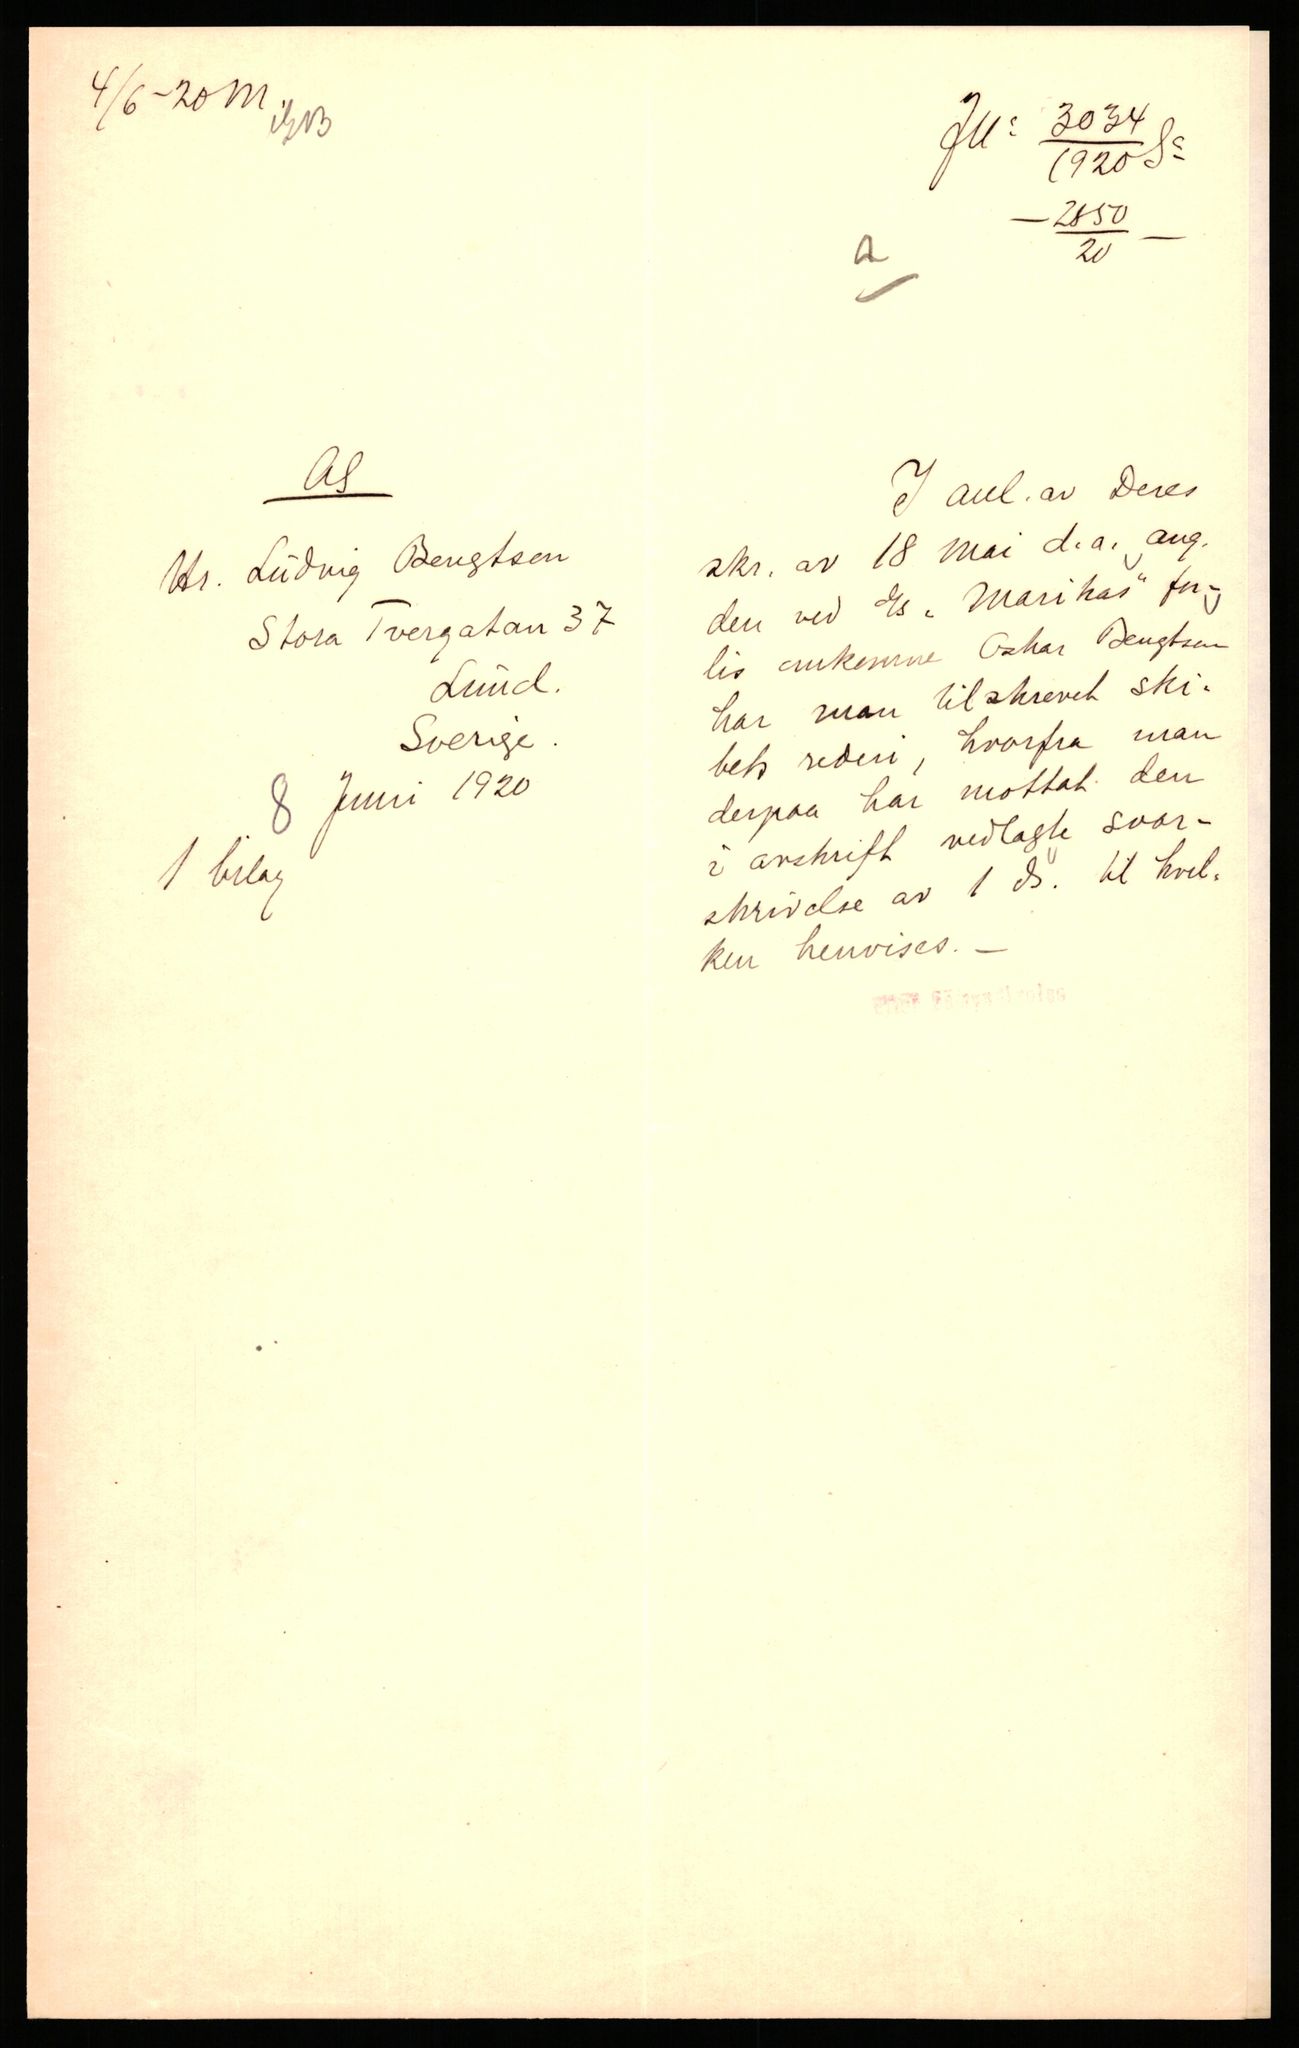 4/6-20 M.
JM: 3034
1920 S:
— 2850 —
20
a
AS
Hr. Ludvig Bengtsen
Stora Tvergatan 37
Lund.
Sverige.
8 Juni 1920
1 bilag
I anl. av Deres
skr. av 18 mai d.a., ang.
den ved D/s „Marihas" for-
lis omkomne Oskar Bengtsen
har man tilskrevet ski-
bets rederi, hvorfra man
derpaa har mottat den
i avskrift vedlagte svar-
skrivelse av 1 ds. til hvil-
ken henvises. —